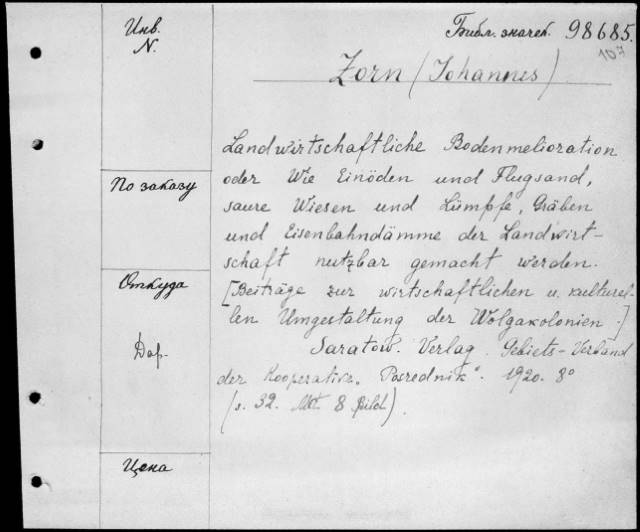 Инв.
N.
Библ. значек. 98685.
107
Zorn (Johannes)
Landwirtschaftliche Bodenmelioration
oder Wie Einöden und Flugsand,
saure Wiesen und Lümpfe, Gräben
und Eisenbahndämme der Landwirt-
schaft nutzbar gemacht werden.
[Beiträge zur wirtschaftlichen u. kulturel-
len Umgestaltung der Wolgakolonien.]
Saratow. Verlag Gebiets-Verband
der Kooperative „Posrednik“. 1920. 8°
(s. 32. Mit 8 Bild)
По заказу
Откуда
Дар.
Цена